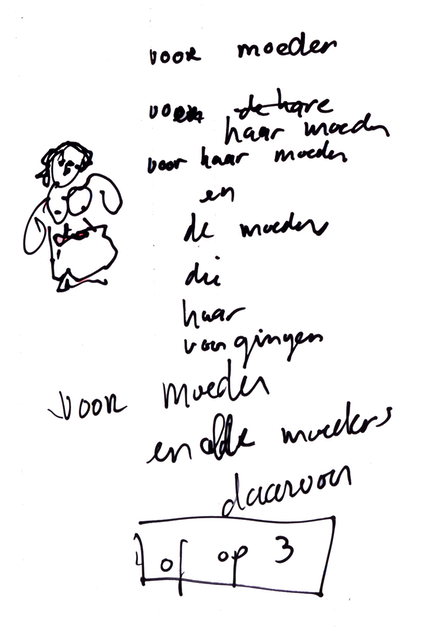 voor moeder
voor de hare
haar moeder
voor haar moeder
en
de moeder
die
haar
voorgingen
voor moeder
en alle moeders
daarvoor
of op 3